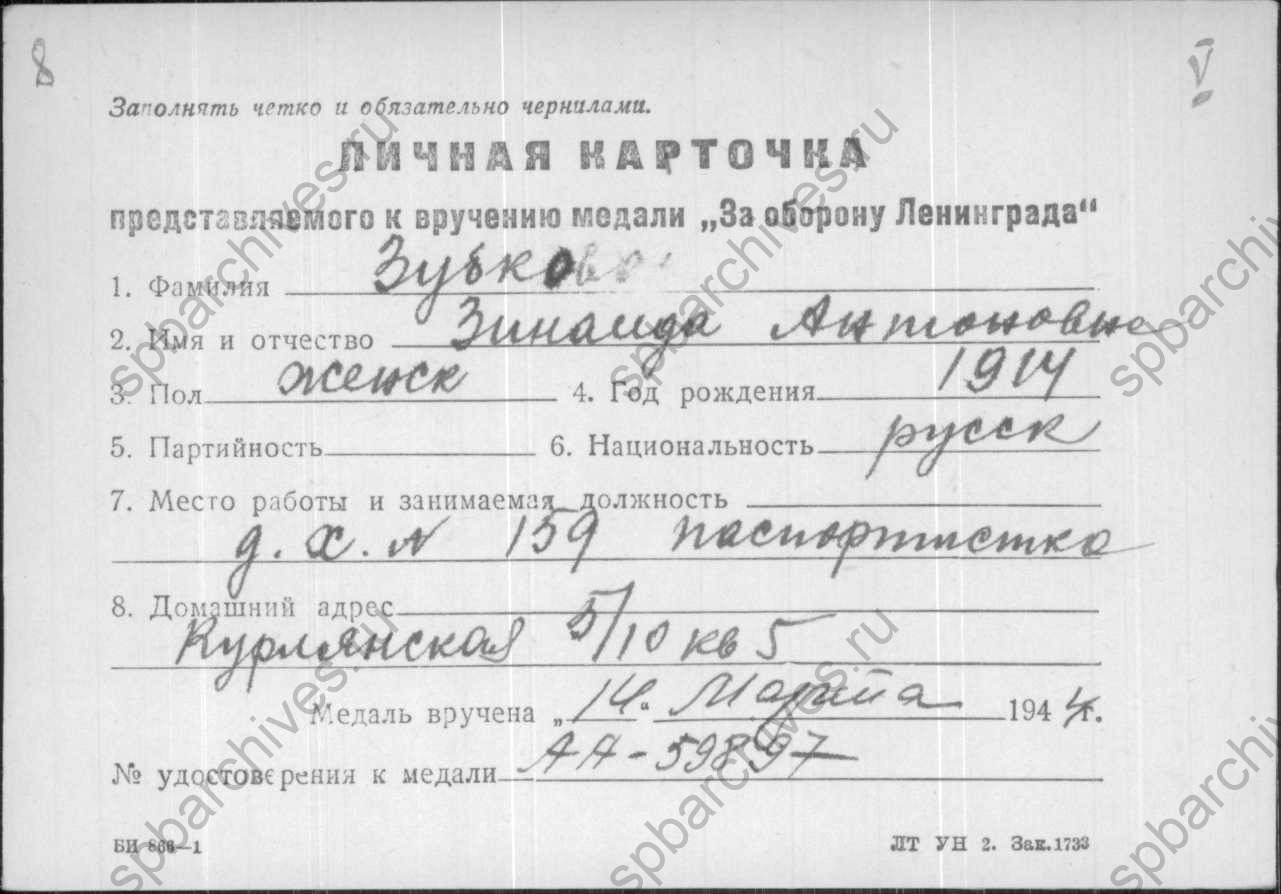 8 V
Заполнять четко и обязательно чернилами.
ЛИЧНАЯ КАРТОЧКА
представляемого к вручению медали „За оборону Ленинграда“
1. Фамилия Зубко
2. Имя и отчество Зинаида Антоновна
3. Пол женск 4. Год рождения 1914
5. Партийность 6. Национальность русск
7. Место работы и занимаемая должность
д. х. № 159 паспортистка
8. Домашний адрес
Курлянская 5/10 кв 5
Медаль вручена „14“ Марта 1944г.
№ удостоверения к медали АА-59897
БИ 866—1 ЛТ УН 2. Зак.1733
spbarchives.ru